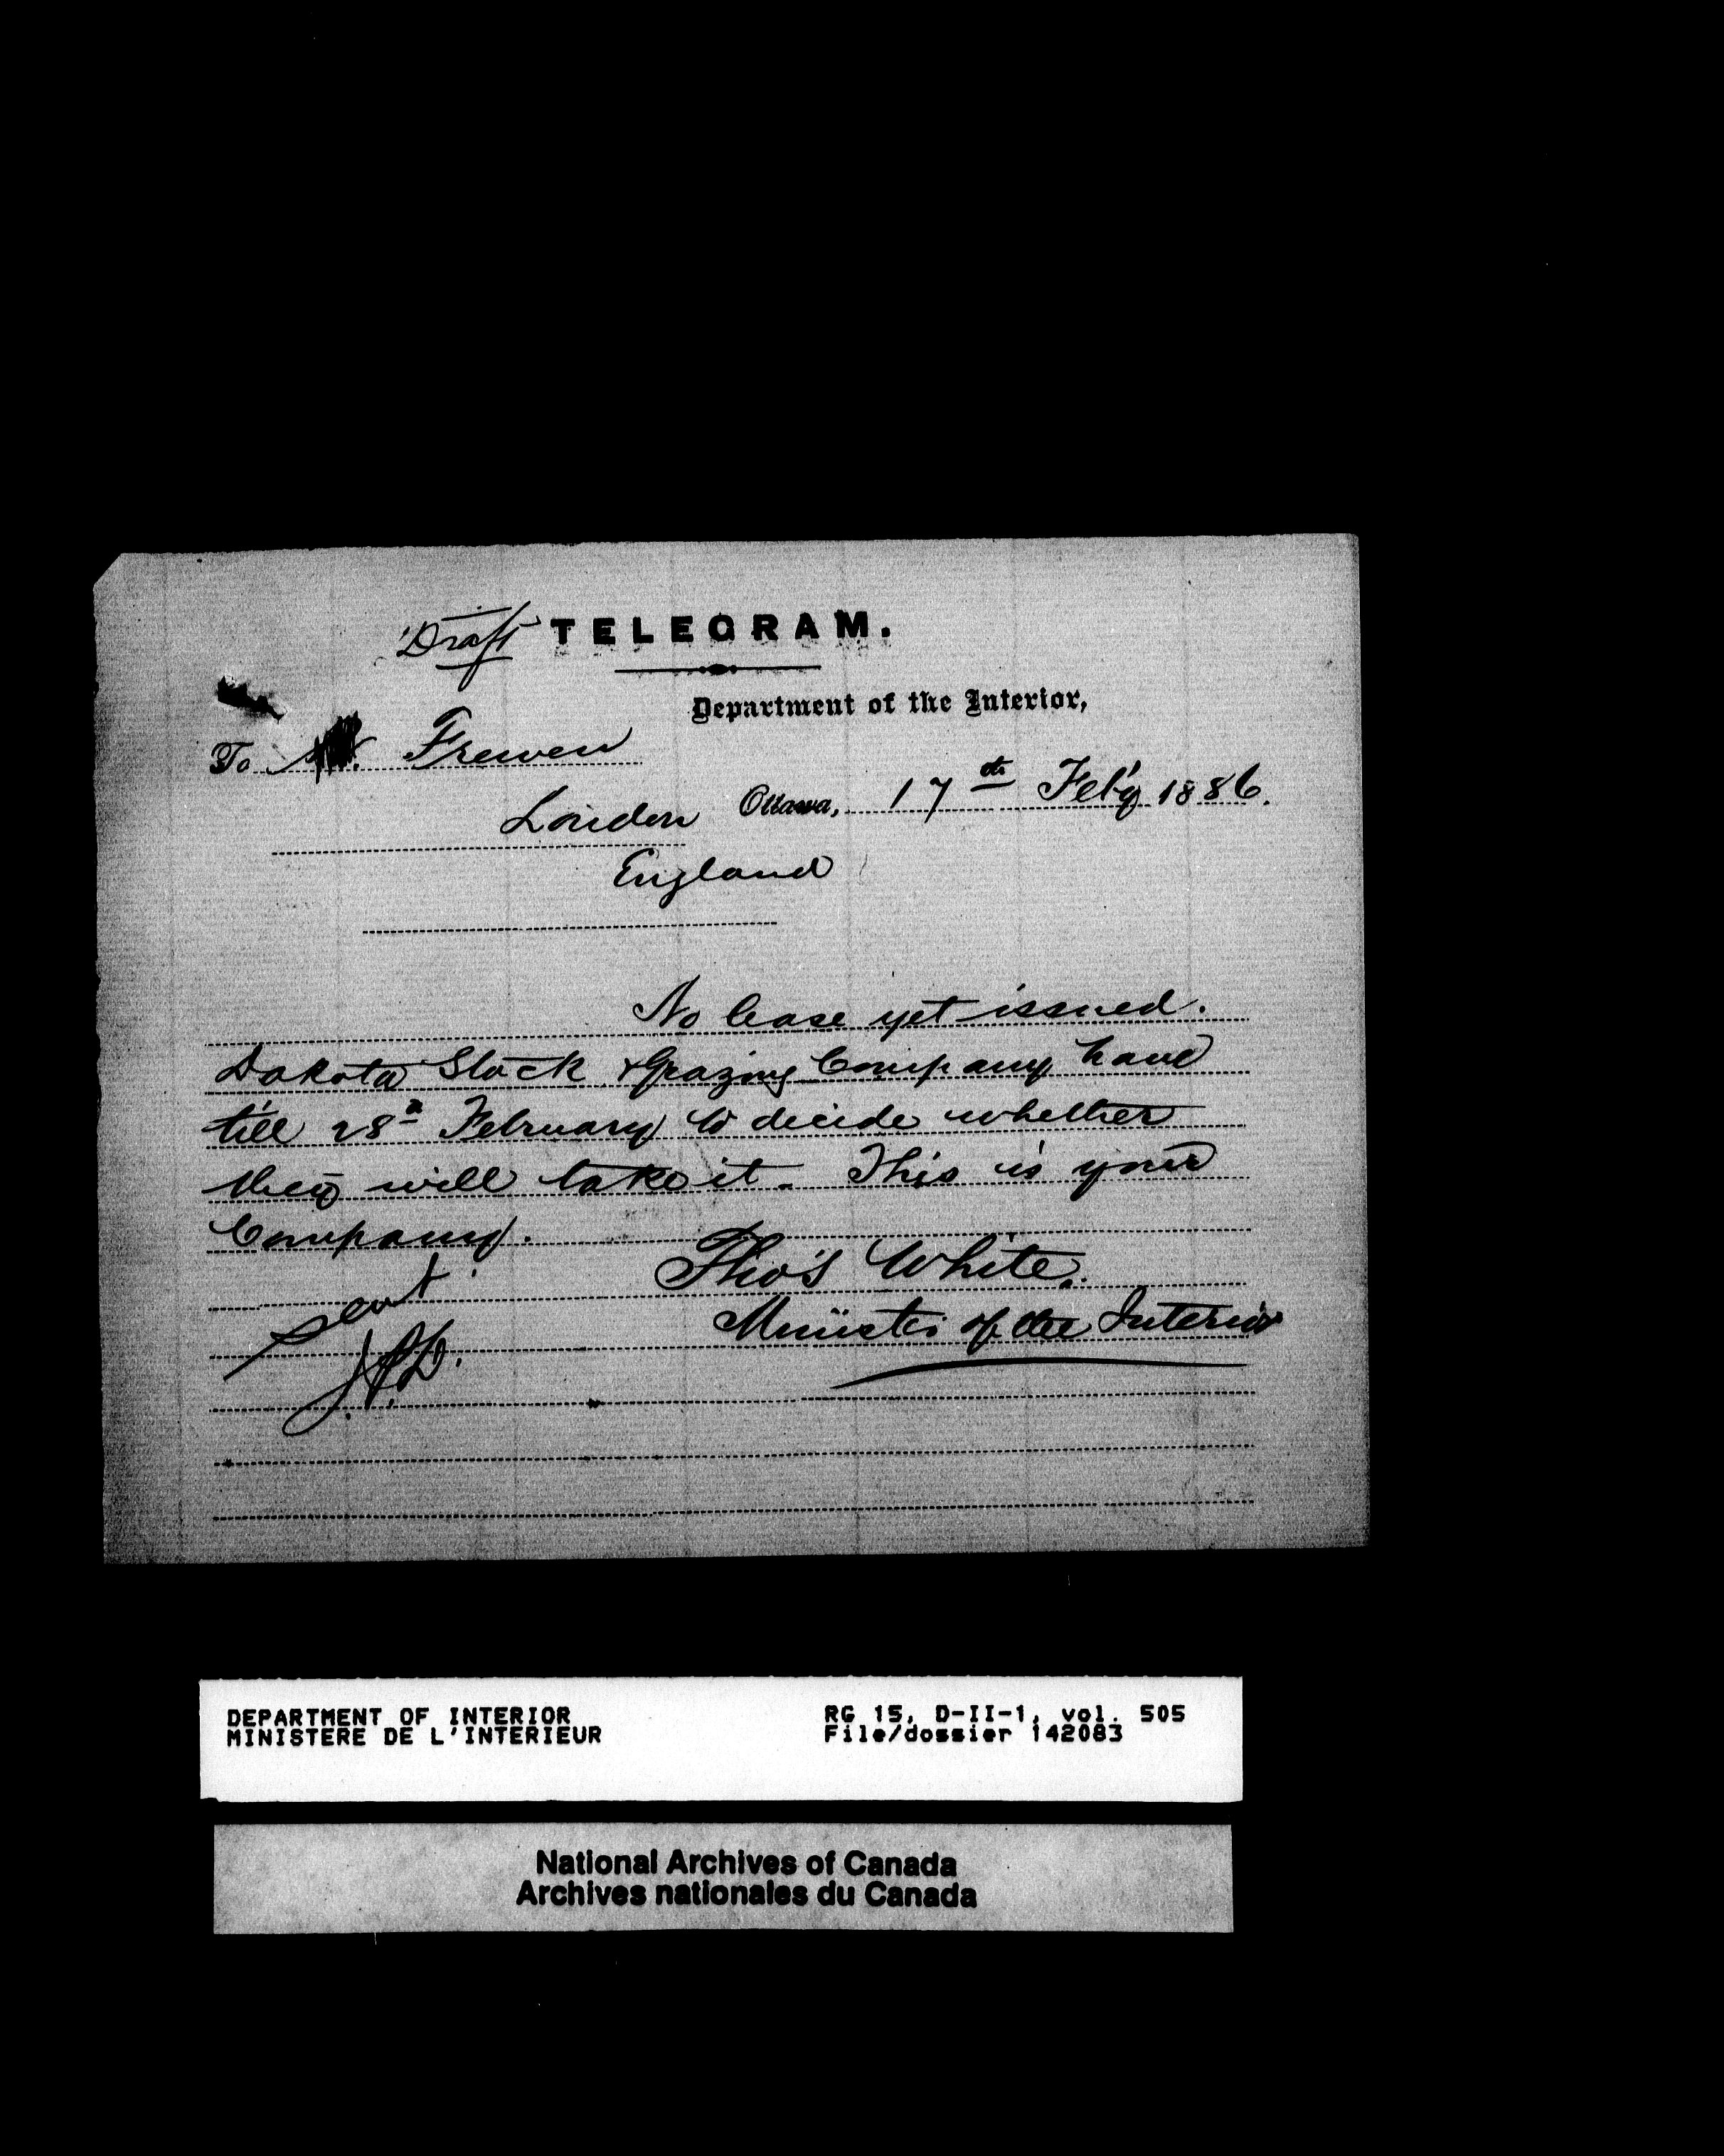 Draft TELEGRAM.
Department of the Interior,
To Frewen
London Ottawa, 17th Feb'y 1886.
England
No lease yet issued.
Dakota Stock & Grazing Company have
till 28th February to decide whether
they will take it. This is your
Company.
Tho's White.
Minister of the Interior
Sent
DEPARTMENT OF INTERIOR RG 15, D-II-1, vol. 505
MINISTERE DE L'INTERIEUR File/dossier 142083
National Archives of Canada
Archives nationales du Canada